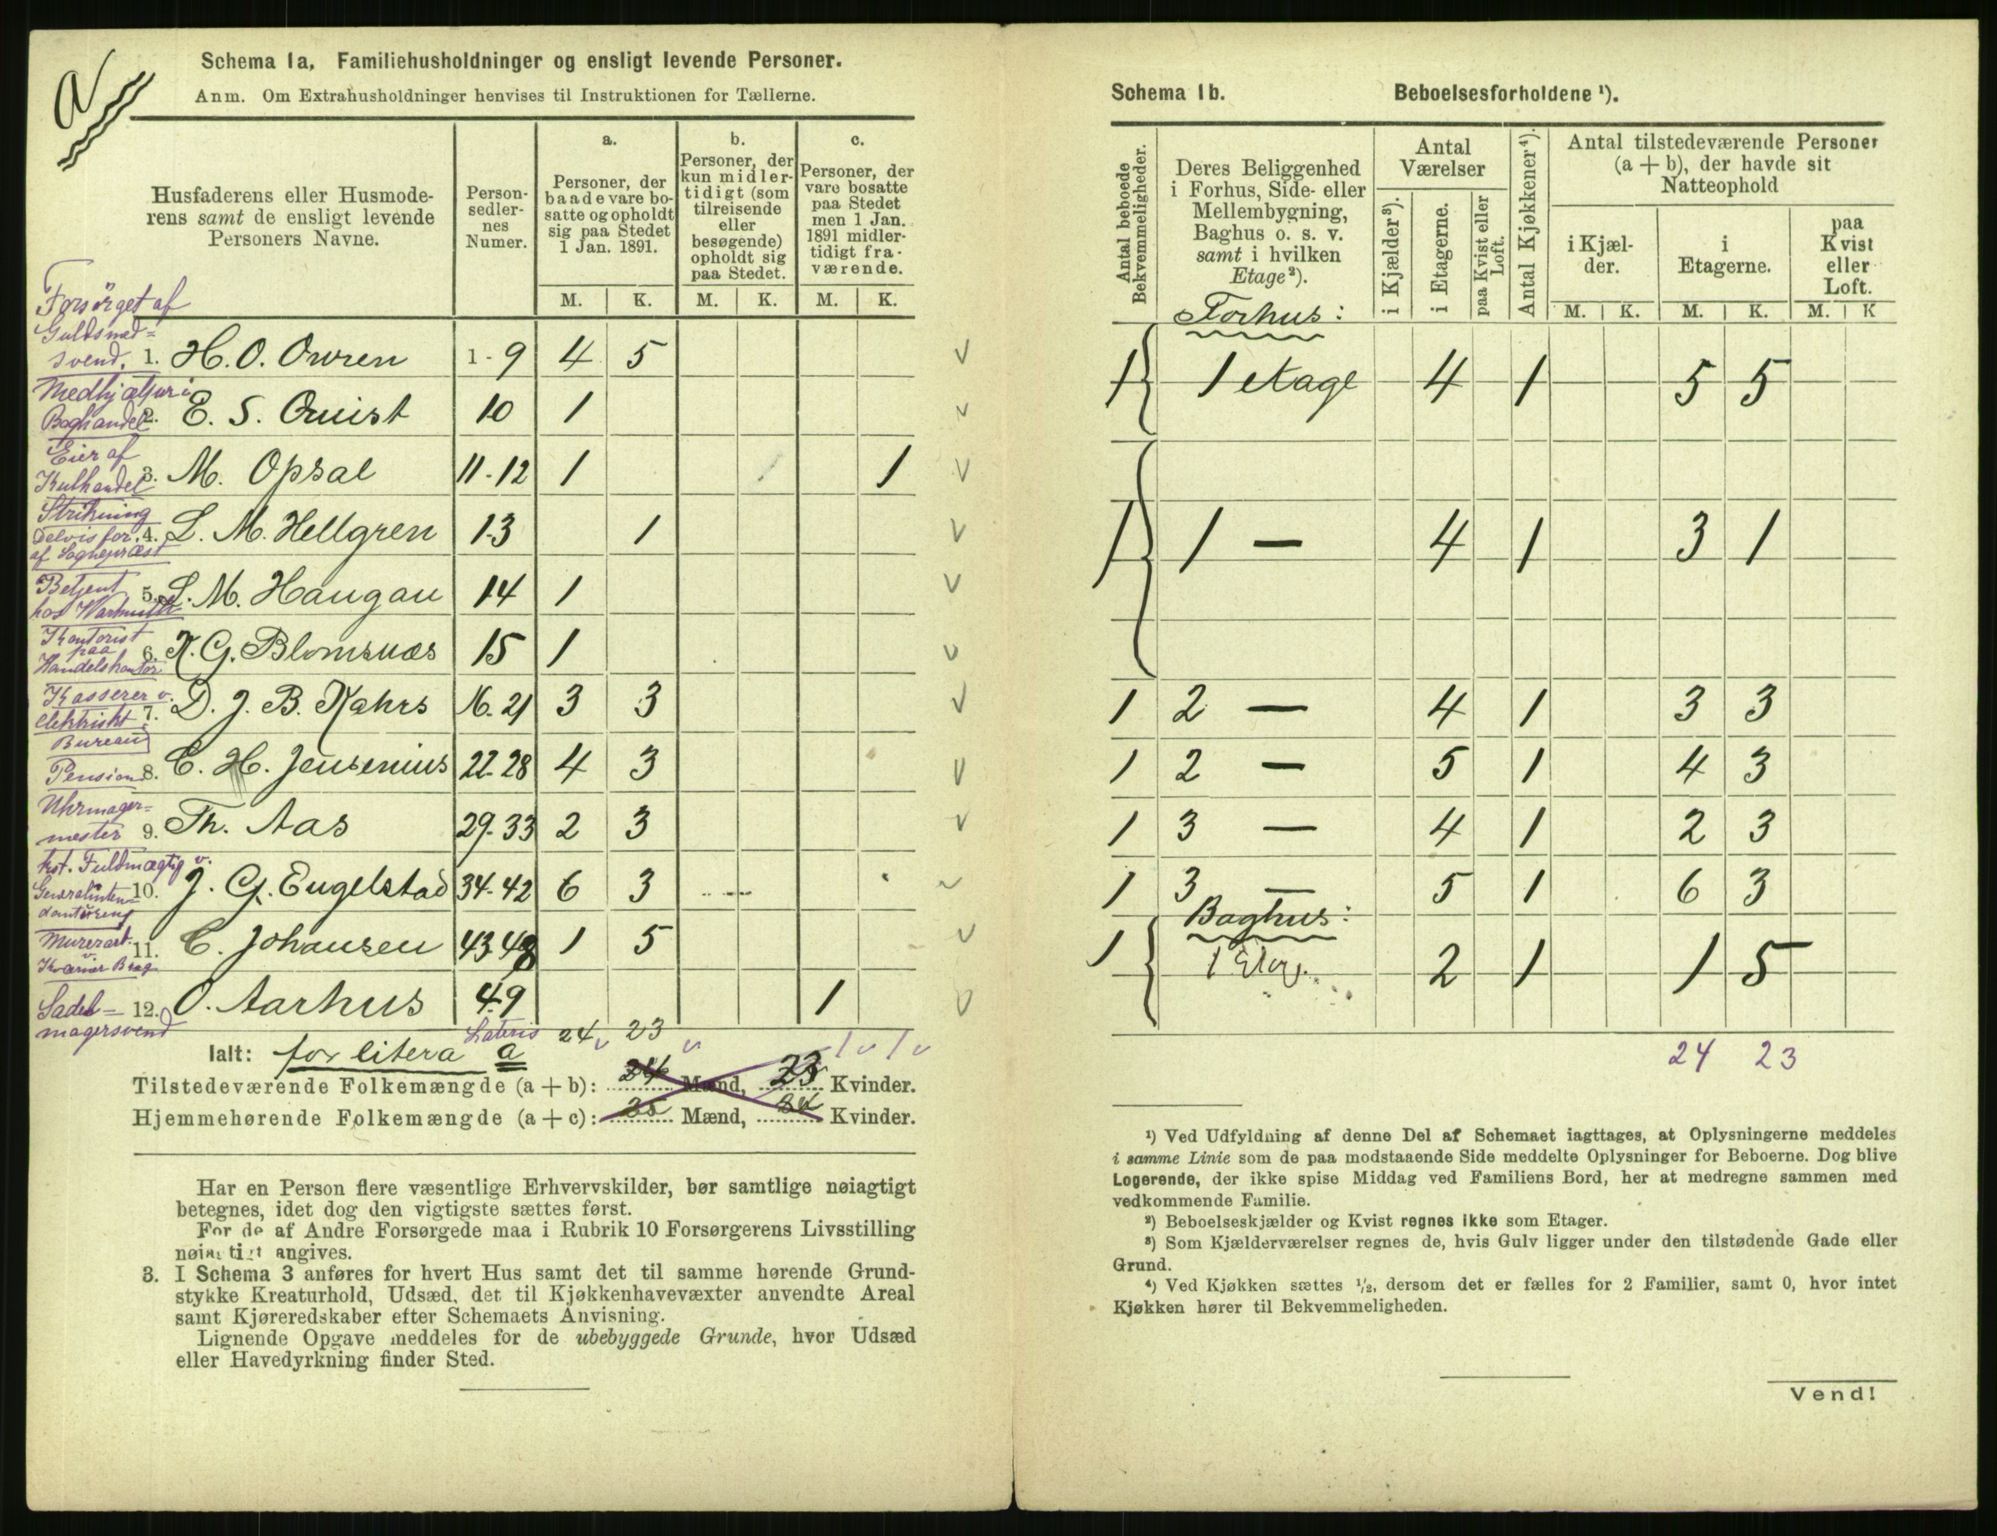 a
Schema 1a, Familiehusholdninger og ensligt levende Personer.
Anm. Om Extrahusholdninger henvises til Instruktionen for Tællerne.
Husfaderens eller Husmode-
rens samt de ensligt levende
Personers Navne.
Person-
sedler-
nes
Numer.
a.
Personer, der
baade vare bo-
satte og opholdt
sig paa Stedet
1 Jan. 1891.
b.
Personer, der
kun midler-
tidigt (som
tilreisende
eller
besøgende)
opholdt sig
paa Stedet.
c.
Personer, der
vare bosatte
paa Stedet
men 1 Jan.
1891 midler-
tidigt fra-
værende.
M. K. M. K. M. K.
Forsörget af
Guldsmed-
svend. 1. H. O. Owren 1-9 4 5
Medhjælper i
Boghandel 2. E. S. Quist 10 1
Eier af
Kulhandel 3. M. Opsal 11-12 1 1
Strikning
Delvis for. 4. L. M. Hellgren 13 1
af Sogneprest
Betjent 5. L. M. Haugan 14 1
hos Warmuth
Kontorist
paa 6. K. G. Blomsnæs 15 1
Handelskontor
Kasserer v.
elektriskt 7. D. J. B. Kahrs 16-21 3 3
Bureau
Pension 8. C. H. Jensenius 22-28 4 3
Uhrmager=
mester 9. Th. Aas 29-33 2 3
kst. Fuldmægtig v.
Generalinten= 10. J. G. Engelstad 34-42 6 3
dantureng
Murerarb. 11. C. Johansen 43-48 1 5
v.
Sadel= 12. O. Aarhus 49 1
magersvend
Lateris 24 23 1 1
Ialt: for litera a
Tilstedeværende Folkemængde (a + b): 24 Mænd, 23 Kvinder.
Hjemmehørende Folkemængde (a + c): 25 Mænd, 24 Kvinder.
Har en Person flere væsentlige Erhvervskilder, bør samtlige nøiagtigt
betegnes, idet dog den vigtigste sættes først.
For de af Andre Forsørgede maa i Rubrik 10 Forsørgerens Livsstilling
nøiagtigt angives.
3. I Schema 3 anføres for hvert Hus samt det til samme hørende Grund-
stykke Kreaturhold, Udsæd, det til Kjøkkenhavevæxter anvendte Areal
samt Kjøreredskaber efter Schemaets Anvisning.
Lignende Opgave meddeles for de ubebyggede Grunde, hvor Udsæd
eller Havedyrkning finder Sted.
Schema 1b. Beboelsesforholdene ¹).
Antal beboede
Bekvemmeligheder.
Deres Beliggenhed
i Forhus, Side- eller
Mellembygning,
Baghus o. s. v.
samt i hvilken
Etage²).
Antal
Værelser
i Kjælder³).
i Etagerne.
paa Kvist eller
Loft.
Antal Kjøkkener⁴).
Antal tilstedeværende Personer
(a + b), der havde sit
Natteophold
i Kjæl-
der.
i
Etagerne.
paa
Kvist
eller
Loft.
M. K. M. K. M. K
Forhus:
1 1 etage 4 1 5 5
1 1 — 4 1 3 1
1 2 — 4 1 3 3
1 2 — 5 1 4 3
1 3 — 4 1 2 3
1 3 — 5 1 6 3
Baghus:
1 1 Etag. 2 1 1 5
24 23
¹) Ved Udfyldning af denne Del af Schemaet iagttages, at Oplysningerne meddeles
i samme Linie som de paa modstaaende Side meddelte Oplysninger for Beboerne. Dog blive
Logerende, der ikke spise Middag ved Familiens Bord, her at medregne sammen med
vedkommende Familie.
²) Beboelseskjælder og Kvist regnes ikke som Etager.
³) Som Kjælderværelser regnes de, hvis Gulv ligger under den tilstødende Gade eller
Grund.
⁴) Ved Kjøkken sættes ½, dersom det er fælles for 2 Familier, samt 0, hvor intet
Kjøkken hører til Bekvemmeligheden.
Vend!